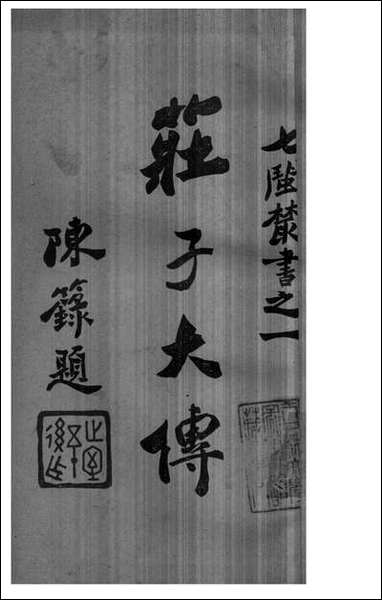 七陛叢書之一
莊子大傳
陳籙題